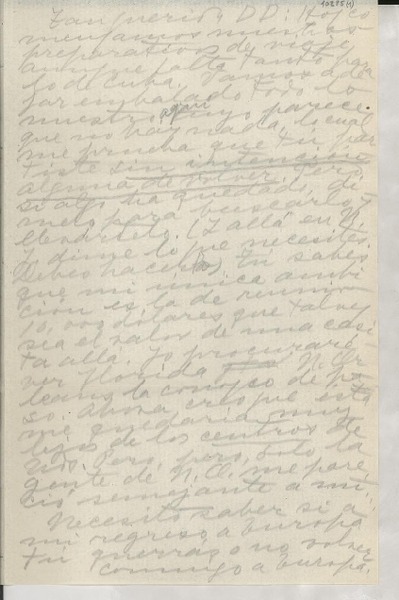 10275 (1)
Tan querido, DD: Hoy co
menzamos nuestros
preparativos de viaje,
aunque falta tanto para
lo de Cuba. Vamos a de
jar embalado todo lo
nuestro. Tuyo aquí parece
que no hay nada, lo cual
me prueba que tú par
tiste sin intención
alguna de volver. Pero,
si algo ha quedado, dí
melo para buscarlo y
llevártelo. (Y allá en N.
Y. dime lo que necesites.
Debes hacerlo) Tú sabes
que mi única ambi
ción es la de reunir
10,000 dólares que tal vez
sea el valor de una casi
ta allá. Yo procuraré
ver Florida. N. Or
leans la conozco de pa
so. Ahora creo que esta
me quedaría muy
lejos de los centros de
Uds. Pero, pero, solo la
gente de N. O. me pare
ció semejante a mí.
Necesito saber si a
mi regreso a Europa
tú querrás o no volver
conmigo a Europa,